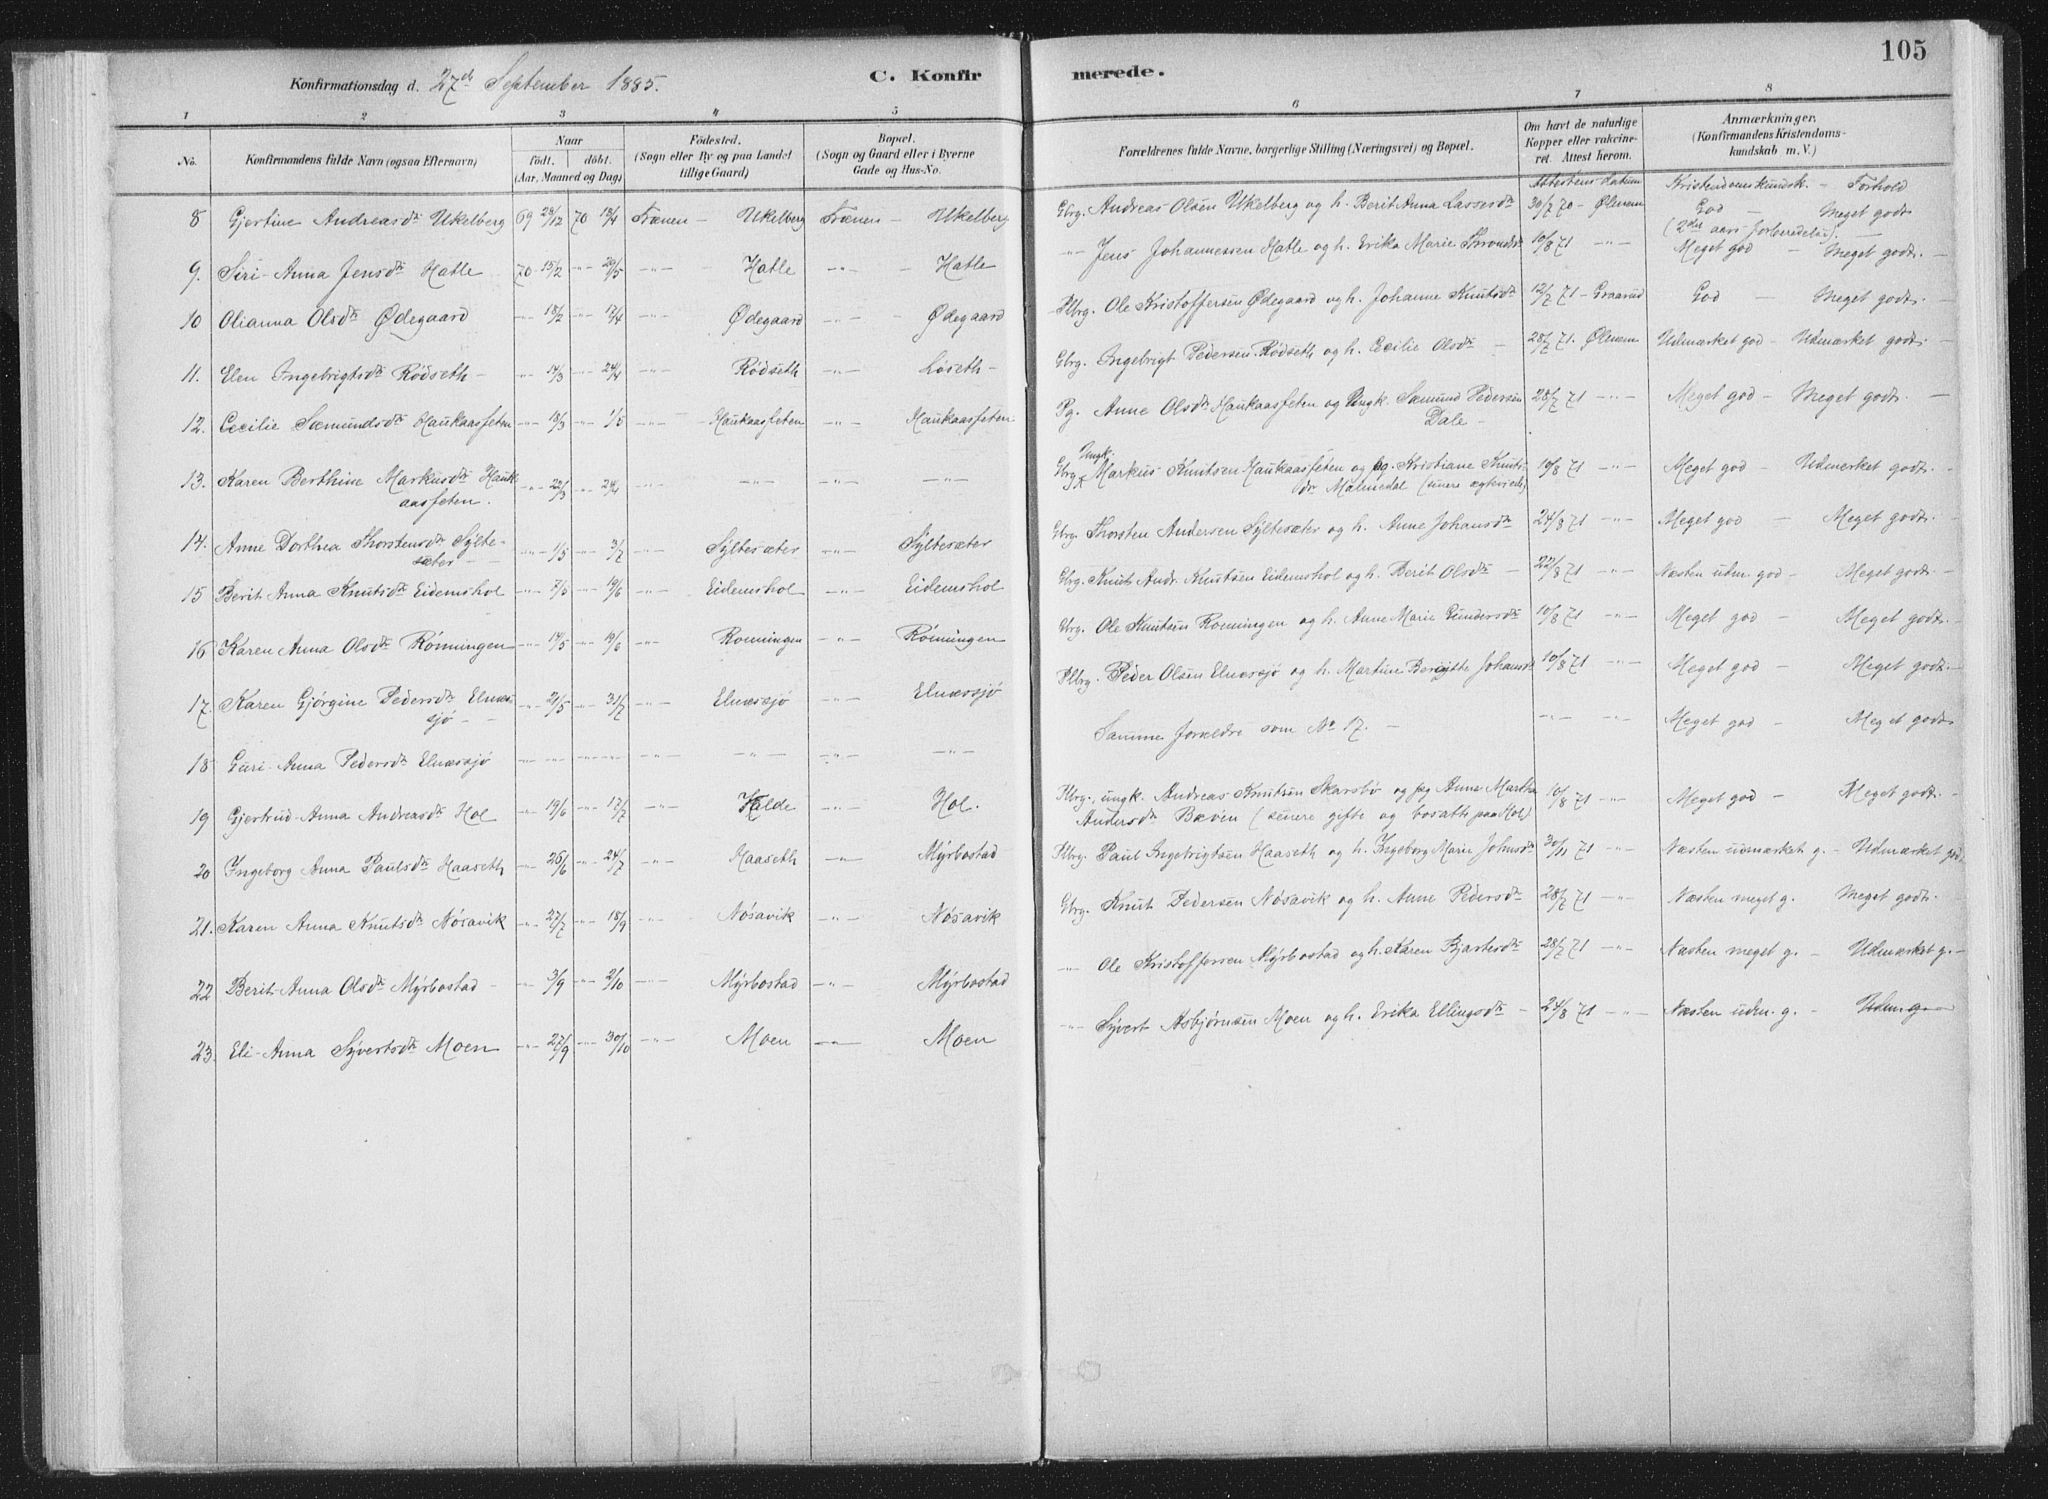 105
Konfirmationsdag d. 27de September 1885. C. Konfirmerede.
1 2 3 4 5 6 7 8
No. Konfirmandens fulde Navn (ogsaa Efternavn) Naar födt. döbt. (Aar, Maaned og Dag) Födested. (Sogn eller By og paa Landet tillige Gaard) Bopæl. (Sogn og Gaard eller i Byerne Gade og Hus-No. Forældrenes fulde Navne, borgerlige Stilling (Næringsvei) og Bopæl. Om havt de naturlige Kopper eller vakcineret. Attest herom. Anmærkninger. (Konfirmandens Kristendomskundskab m. V.)
Attestens datum Kristendomskundsk. - Forhold
8 Gjertine Andreasdtr Ukelberg 69 28/12 70 18/4 Frænen - Ukelberg Frænen - Ukelberg Gbrg. Andreas Olsen Ukelberg og h. Berit Anna Lassesdtr 30/7 70 - Ølenem God - Meget godt
(2det aars forberedelse)
9. Siri-Anna Jensdtr Hatle 70 15/2 -"- 29/5 -"- Hatle -"- Hatle -"- Jens Johannessen Hatle og h. Erika Marie Thronds 10/8 71 -"- Meget god - Meget godt. -
10 Olianna Olsdtr Ødegaard -"- 18/2 -"- 17/4 -"- Ødegaard -"- Ødegaard Plbrg. Ole Kristoffersen Ødegaard og h. Johanne Knutsdtr 12/7 71 - Graarud God - Meget godt. -
11. Elen Ingebrigtsdtr Rödseth - -"- 14/3 -"- 24/4 -"- Rödseth -"- Löseth - Gbrg. Ingebrigt Pedersen Rödseth og h. Cecilie Olsdtr - 28/7 71. Ølenem Udmærket god - Udmærket godt. -
12. Cecilie Sæmundsdtr Haukaasfeten -"- 13/3 -"- 1/5 -"- Haukaasfeten -"- Haukaasfeten Pg. Anne Olsdtr Haukaasfeten og Ungk. Sæmund Pedersen Dale - 28/7 71 -"- Meget god - Meget godt. -
13. Karen Berthine Markusdtr Haukaasfeten. -"- 22/3 -"- 24/4 -"- -"- -"- -"- Gbrg Ungk. Markus Knutsen Haukaasfeten og pg. Kristiane Knutsdtr Malmedal (senere ægteviede) 10/8 71 -"- Meget god - Udmærket godt.
14. Anne Dorthea Thorstensdtr Syltesæter - -"- 1/5 -"- 3/7 -"- Syltesæter -"- Syltesæter Gbrg. Thorsten Andersen Syltesæter og h. Anne Johansdtr 24/8 71 -"- Meget god - Meget godt. -
15 Berit Anna Knutsdtr Eidemshol -"- 7/5 -"- 19/6 -"- Eidemshol -"- Eidemshol Gbrg. Knut Andr. Knutsen Eidemshol og h. Berit Olsdtr - 22/8 71 -"- Næsten udm. god - Meget godt. -
16 Karen Anna Olsdtr Rönningen -"- 14/5 -"- 19/6 -"- Rönningen -"- Rönningen Ole Knutsen Rönningen og h. Anne Marie Gundersdtr 10/8 71 -"- Meget god - Meget godt. -
17. Karen Gjörgine Pedersdtr Elnæssjö - -"- 21/5 -"- 31/7 -"- Elnæssjö -"- Elnæssjö Plbrg. Peder Olsen Elnæssjö og h. Martine Berigitte Johansd 10/8 71 -"- Meget god - Meget godt. -
18 Guri-Anna Pedersdtr Elnæssjö -"- -"- -"- -"- -"- -"- -"- -"- Samme forældre som No 17. - -"- -"- Meget god - Meget godt.
19 Gjertrud-Anna Andreasdtr Hol -"- 19/6 -"- 17/7 -"- Halde -"- Hol. Plbrg., ungk. Andreas Knutsen Skarsbö og pg Anne Martha Andersdtr Bæven (senere gifte og bosatte paa Hol) 10/8 71 -"- Meget god - Meget godt. -
20 Ingeborg Anna Paulsdtr Haaseth -"- 26/6 -"- 24/7 -"- Haaseth -"- Myrbostad Plbrg. Paul Ingebrigtsen Haaseth og h. Ingeborg Marie Johnsdtr 30/11 71 -"- Næsten udmærket g. - Udmærket godt.
21. Karen Anna Knutsdtr Nösavik -"- 27/7 -"- 18/9 -"- Nösavik -"- Nösavik Gbrg. Knut Pedersen Nösavik og h. Anne Pedersdtr 28/7 71 -"- Næsten meget g. Meget godt. -
22 Berit-Anna Olsdtr Myrbostad - -"- 3/9 -"- 2/10 -"- Myrbostad -"- Myrbostad -"- Ole Kristoffersen Myrbostad og h. Karen Bjartesdtr 28/7 71 -"- Næsten meget g. - Udmærket g. -
23. Eli-Anna Syvertsdtr Moen -"- 27/9 -"- 30/10 -"- Moen -"- Moen -"- Syvert Asbjørnsen Moen og h. Erika Ellingsdtr - 24/8 71 -"- Næsten udm. g. - Udm. g.